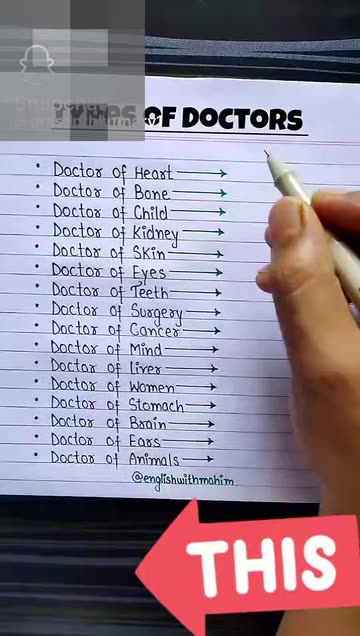 TYPES OF DOCTORS
• Doctor of Heart →
• Doctor of Bone →
• Doctor of Child →
• Doctor of Kidney →
• Doctor of Skin →
• Doctor of Eyes →
• Doctor of Teeth →
• Doctor of Surgery →
• Doctor of Cancer →
• Doctor of Mind →
• Doctor of liver →
• Doctor of Women →
• Doctor of Stomach →
• Doctor of Brain →
• Doctor of Ears →
• Doctor of Animals →
@englishwithmahim
THIS